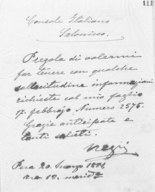 111
Console Italiano
Salonicco
Pregola di volermi
far tenere con qualche
sollecitudine informazioni
richieste col mio foglio
17 febbraio Numero 2876.
Grazie anticipate e
tanti saluti